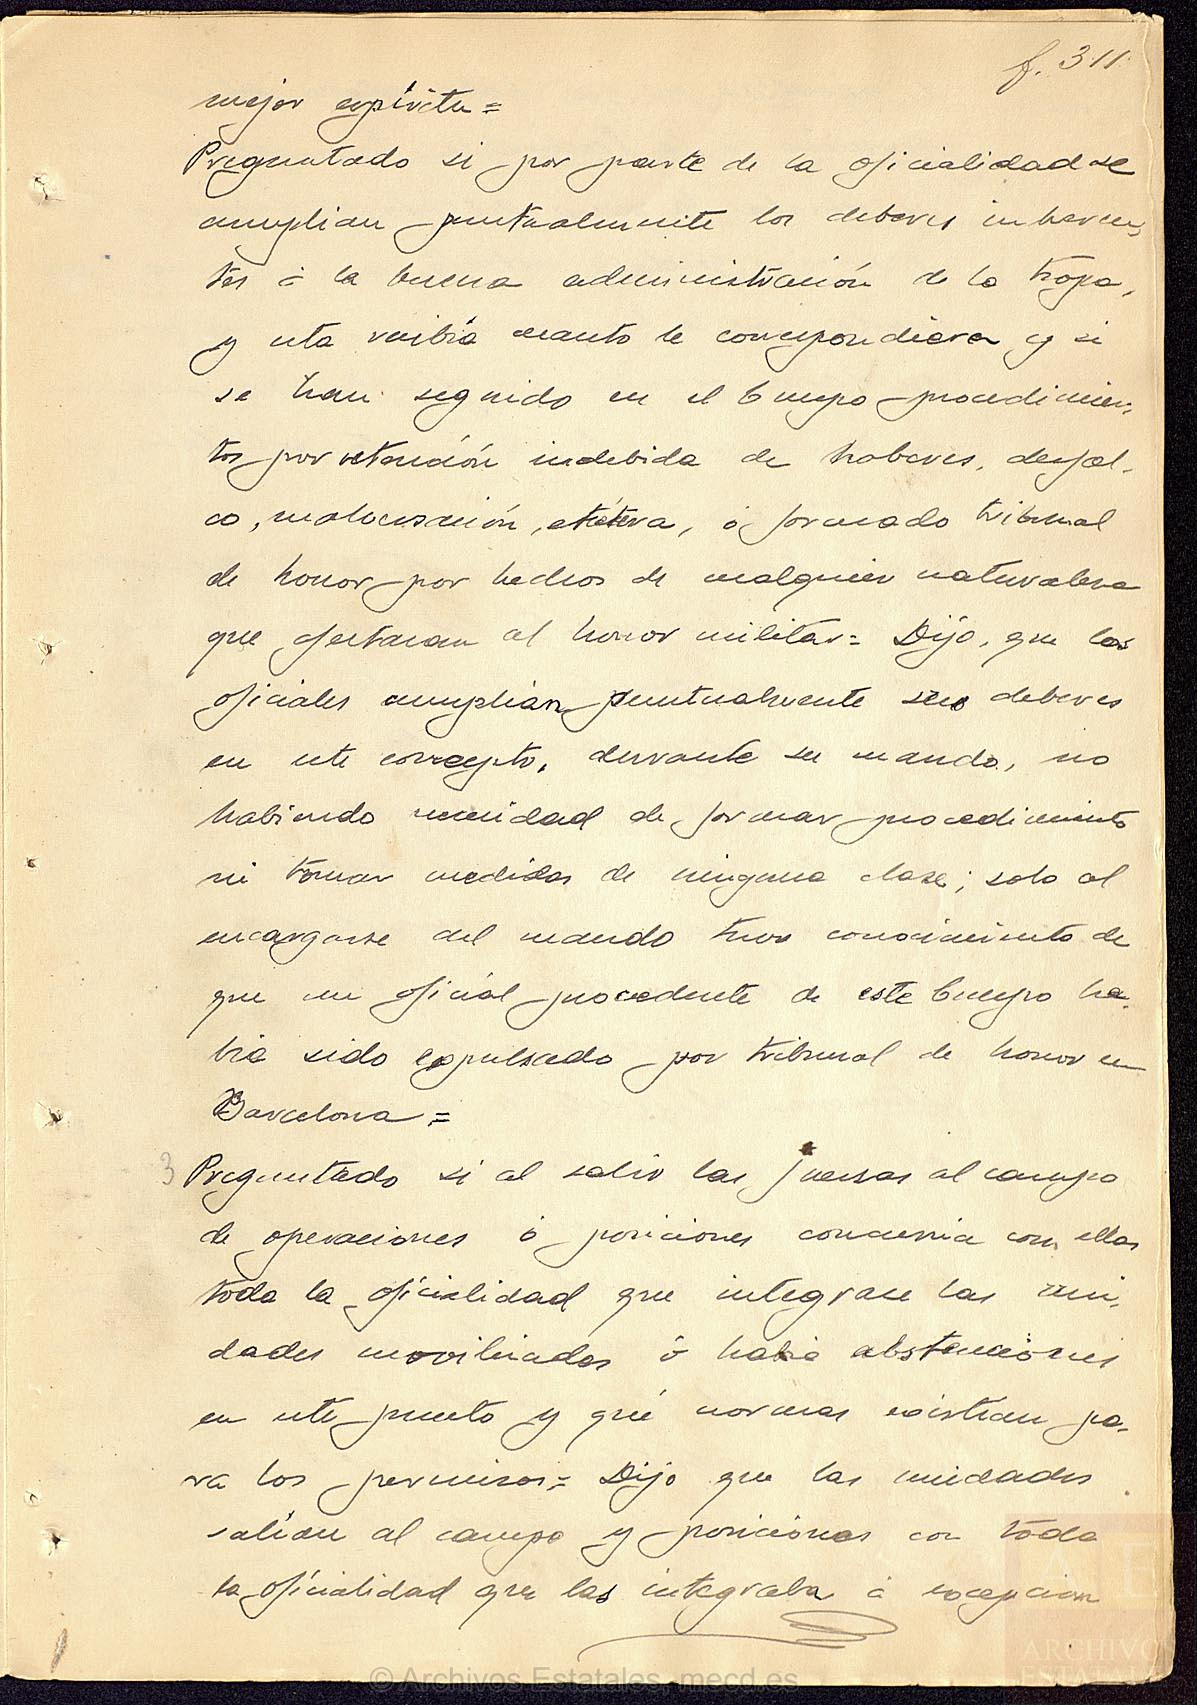 f. 311
mejor espíritu =
Preguntado si por parte de la oficialidad se
cumplian puntualmente los deberes inheren-
tes á la buena administración de la tropa,
y esta recibía cuanto le correspondiera y si
se han seguido en el Cuerpo procedimien-
tos por retención indebida de haberes, desfal-
co, malversación, etcétera, ó formado tribunal
de honor por hechos de cualquier naturaleza
que afectaran al honor militar = Dijo, que los
oficiales cumplían puntualmente sus deberes
en este concepto, durante su mando, no
habiendo necesidad de formar procedimiento
ni tomar medidas de ninguna clase; solo al
encargarse del mando tuvo conocimiento de
que un oficial procedente de este Cuerpo ha-
bia sido expulsado por tribunal de honor en
Barcelona =
3 Preguntado si al salir las fuerzas al campo
de operaciones ó posiciones concurria con ellas
toda la oficialidad que integran las uni-
dades movilizadas ó habia abstenciones
en este punto y qué normas existian pa-
ra los permisos = Dijo que las unidades
salían al campo y posiciones con toda
la oficialidad que las integraba á excepcion
ARCHIVOS
ESTATALES
© Archivos Estatales, mecd.es